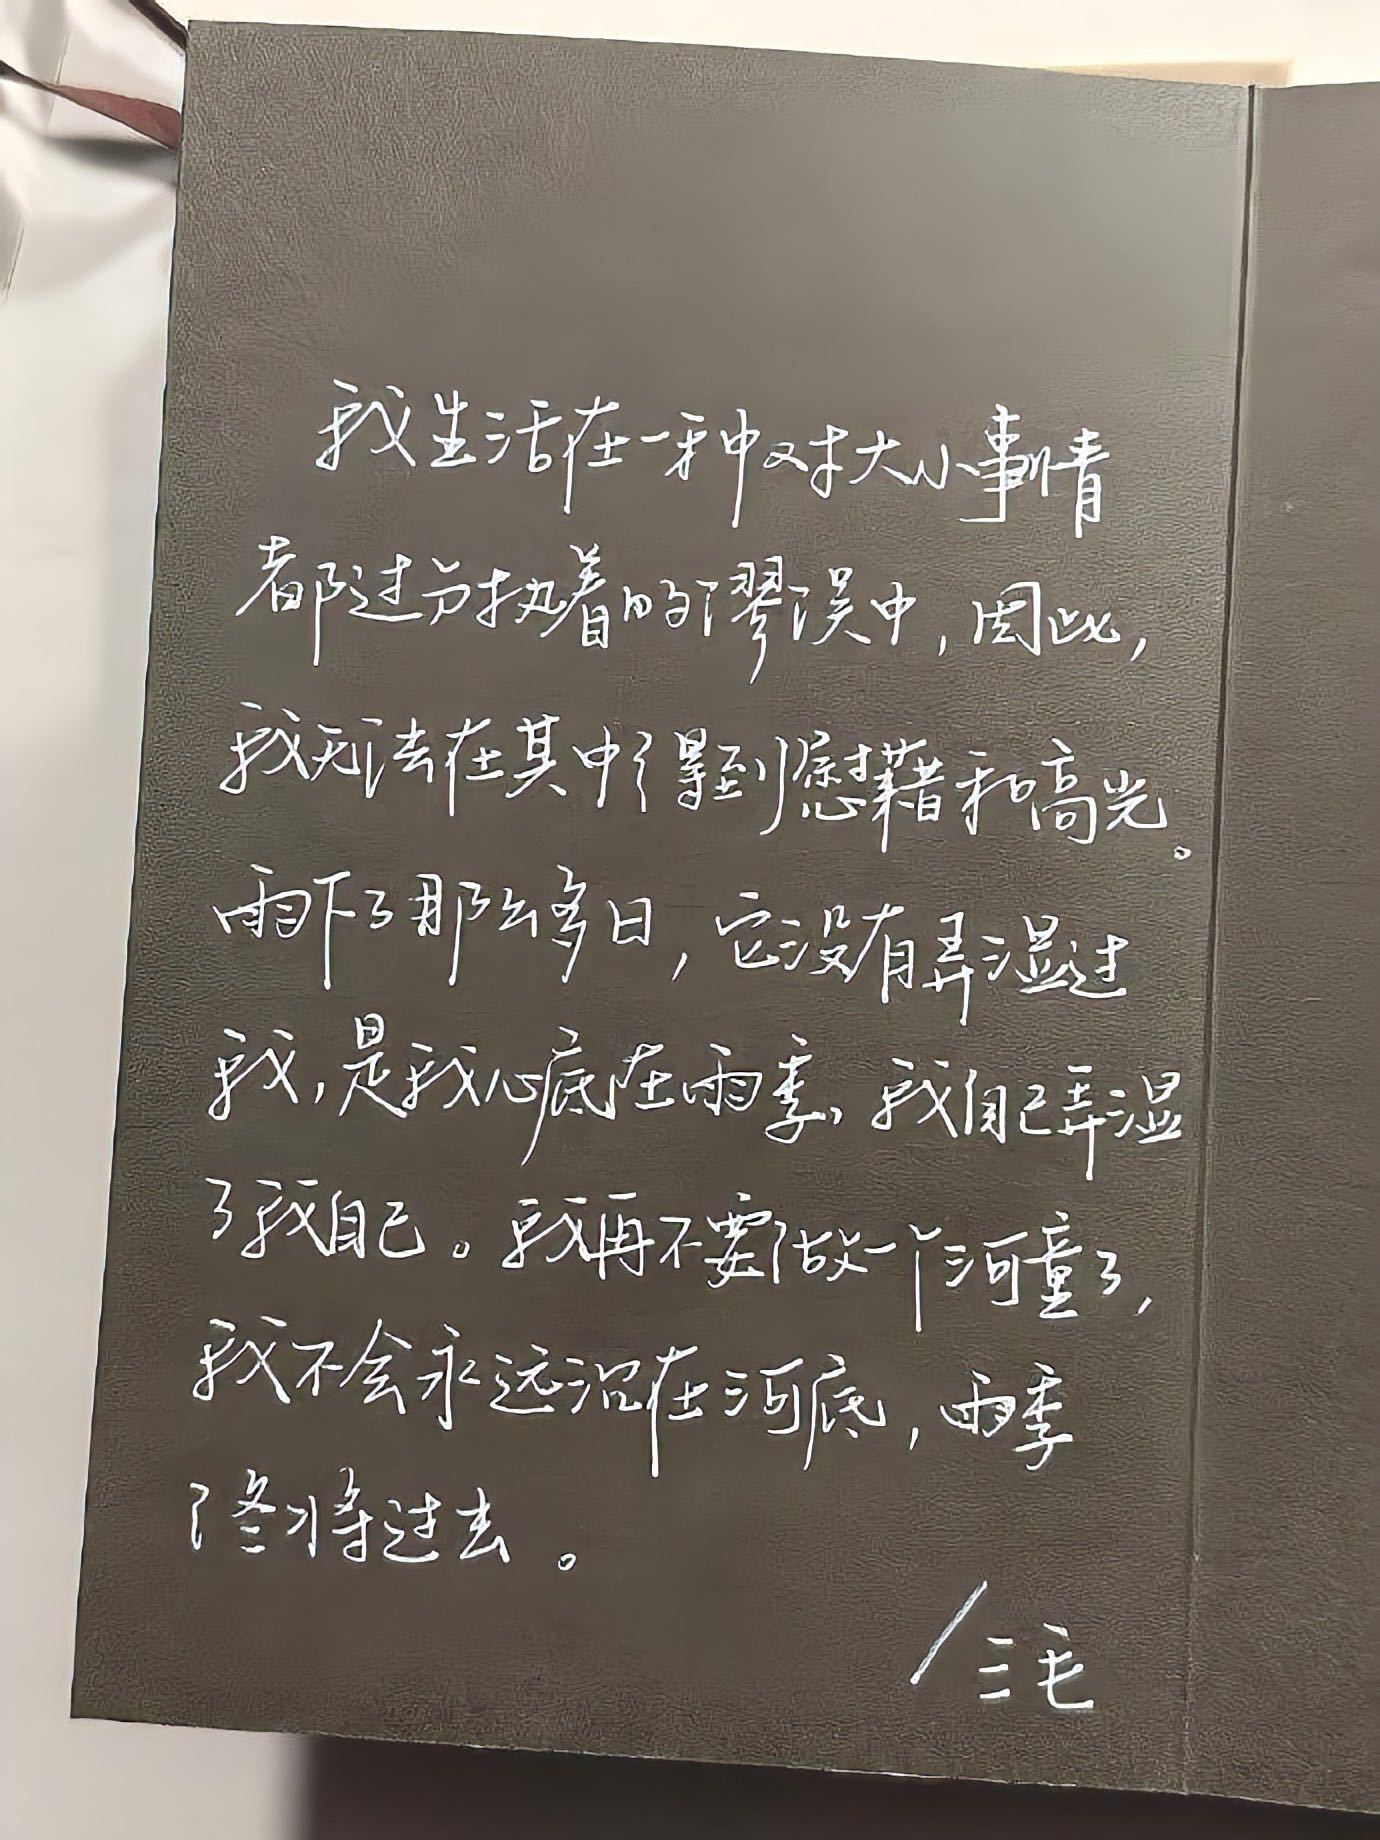 我生活在一种对大小事情
都过分执着的谬误中，因此，
我无法在其中得到慰藉和高光。
雨下了那么多日，它没有弄湿过
我，是我心底在雨季，我自己弄湿
了我自己。我再不要做一个河童了，
我不会永远沉在河底，雨季
终将过去。
/三毛